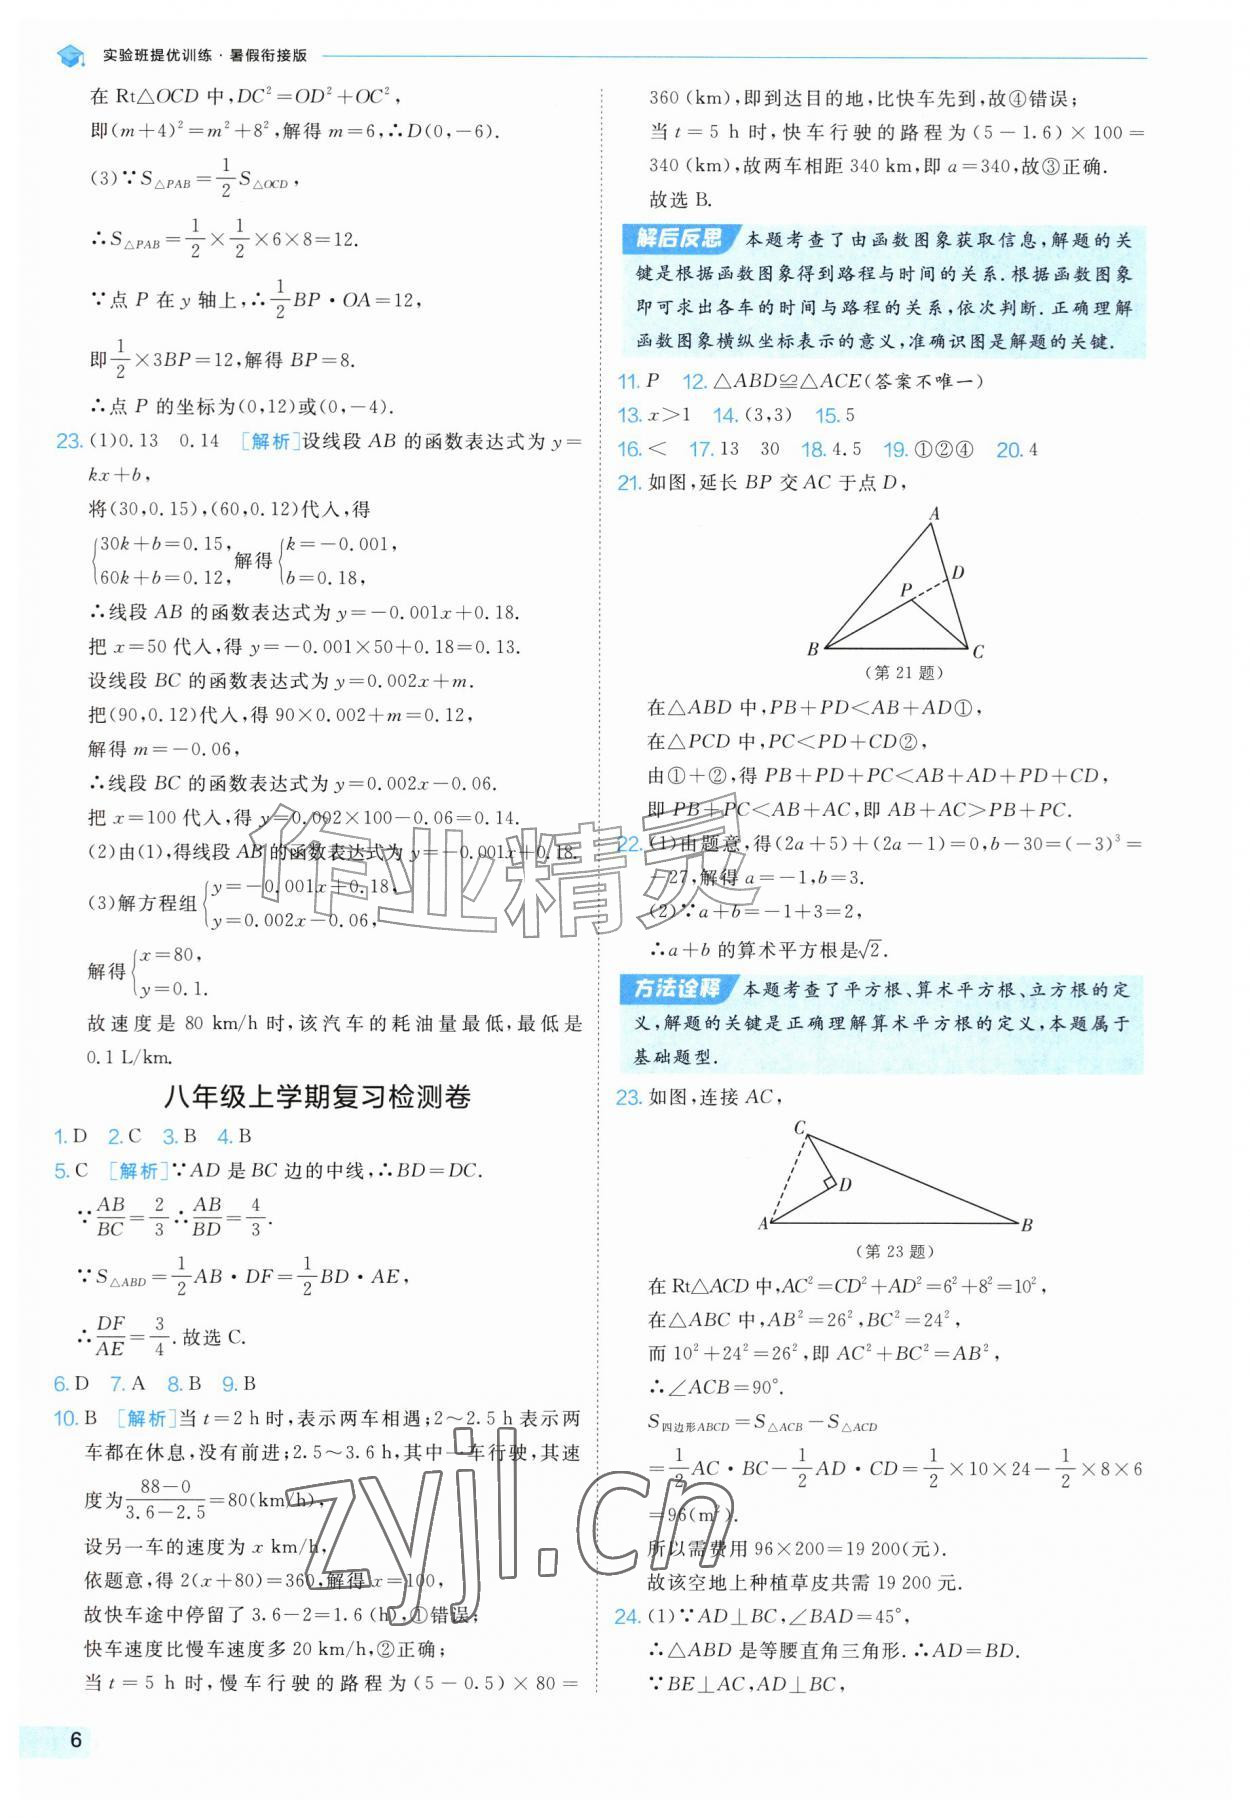 实验班提优训练·暑假衔接版
在 Rt△OCD 中,DC²=OD²+OC²,
即(m+4)²=m²+8²,解得 m=6,∴D(0,-6).
(3)∵S△PAB=1/2 S△OCD,
∴S△PAB=1/2×1/2×6×8=12.
∵点 P 在 y 轴上,∴1/2 BP·OA=12,
即1/2×3BP=12,解得 BP=8.
∴点 P 的坐标为(0,12)或(0,-4).
23. (1)0.13 0.14 [解析]设线段 AB 的函数表达式为 y=
kx+b,
将(30,0.15),(60,0.12)代入,得
{30k+b=0.15, 60k+b=0.12, 解得{k=-0.001, b=0.18,
∴线段 AB 的函数表达式为 y=-0.001x+0.18.
把 x=50 代入,得 y=-0.001×50+0.18=0.13.
设线段 BC 的函数表达式为 y=0.002x+m.
把(90,0.12)代入,得 90×0.002+m=0.12,
解得 m=-0.06,
∴线段 BC 的函数表达式为 y=0.002x-0.06.
把 x=100 代入,得 y=0.002×100-0.06=0.14.
(2)由(1),得线段 AB 的函数表达式为 y=-0.001x+0.18.
(3)解方程组{y=-0.001x+0.18, y=0.002x-0.06,
解得{x=80, y=0.1.
故速度是 80 km/h 时,该汽车的耗油量最低,最低是
0.1 L/km.
八年级上学期复习检测卷
1. D 2. C 3. B 4. B
5. C [解析]∵AD 是 BC 边的中线,∴BD=DC.
∵AB/BC=2/3 ∴AB/BD=4/3.
∵S△ABD=1/2 AB·DF=1/2 BD·AE,
∴DF/AE=3/4.故选 C.
6. D 7. A 8. B 9. B
10. B [解析]当 t=2 h时,表示两车相遇;2~2.5 h 表示两
车都在休息,没有前进;2.5~3.6 h,其中一车行驶,其速
度为(88-0)/(3.6-2.5)=80(km/h),
设另一车的速度为 x km/h,
依题意,得 2(x+80)=360,解得 x=100,
故快车途中停留了 3.6-2=1.6 (h),①错误;
快车速度比慢车速度多 20 km/h,②正确;
当 t=5 h 时,慢车行驶的路程为 (5-0.5)×80=
360 (km),即到达目的地,比快车先到,故④错误;
当 t=5 h 时,快车行驶的路程为 (5-1.6)×100=
340 (km),故两车相距 340 km,即 a=340,故③正确.
故选 B.
解后反思 本题考查了由函数图象获取信息,解题的关
键是根据函数图象得到路程与时间的关系.根据函数图象
即可求出各车的时间与路程的关系,依次判断.正确理解
函数图象横纵坐标表示的意义,准确识图是解题的关键.
11. P 12. △ABD≌△ACE(答案不唯一)
13. x>1 14. (3,3) 15. 5
16. < 17. 13 30 18. 4.5 19. ①②④ 20. 4
21. 如图,延长 BP 交 AC 于点 D,
A
D
P
B
C
(第 21 题)
在△ABD 中,PB+PD<AB+AD①,
在△PCD 中,PC<PD+CD②,
由①+②,得 PB+PD+PC<AB+AD+PD+CD,
即 PB+PC<AB+AC,即 AB+AC>PB+PC.
22. (1)由题意,得(2a+5)+(2a-1)=0,b-30=(-3)³=
-27,解得 a=-1,b=3.
(2)∵a+b=-1+3=2,
∴a+b 的算术平方根是√2.
方法诠释 本题考查了平方根、算术平方根、立方根的定
义,解题的关键是正确理解算术平方根的定义,本题属于
基础题型.
23. 如图,连接 AC,
C
D
A
B
(第 23 题)
在 Rt△ACD 中,AC²=CD²+AD²=6²+8²=10²,
在△ABC 中,AB²=26²,BC²=24²,
而 10²+24²=26²,即 AC²+BC²=AB²,
∴∠ACB=90°.
S四边形ABCD=S△ACB-S△ACD
=1/2 AC·BC-1/2 AD·CD=1/2×10×24-1/2×8×6
=96(m²).
所以需费用 96×200=19 200(元).
故该空地上种植草皮共需 19 200 元.
24. (1)∵AD⊥BC,∠BAD=45°,
∴△ABD 是等腰直角三角形.∴AD=BD.
∵BE⊥AC,AD⊥BC,
6
作业精灵
zyjl.cn